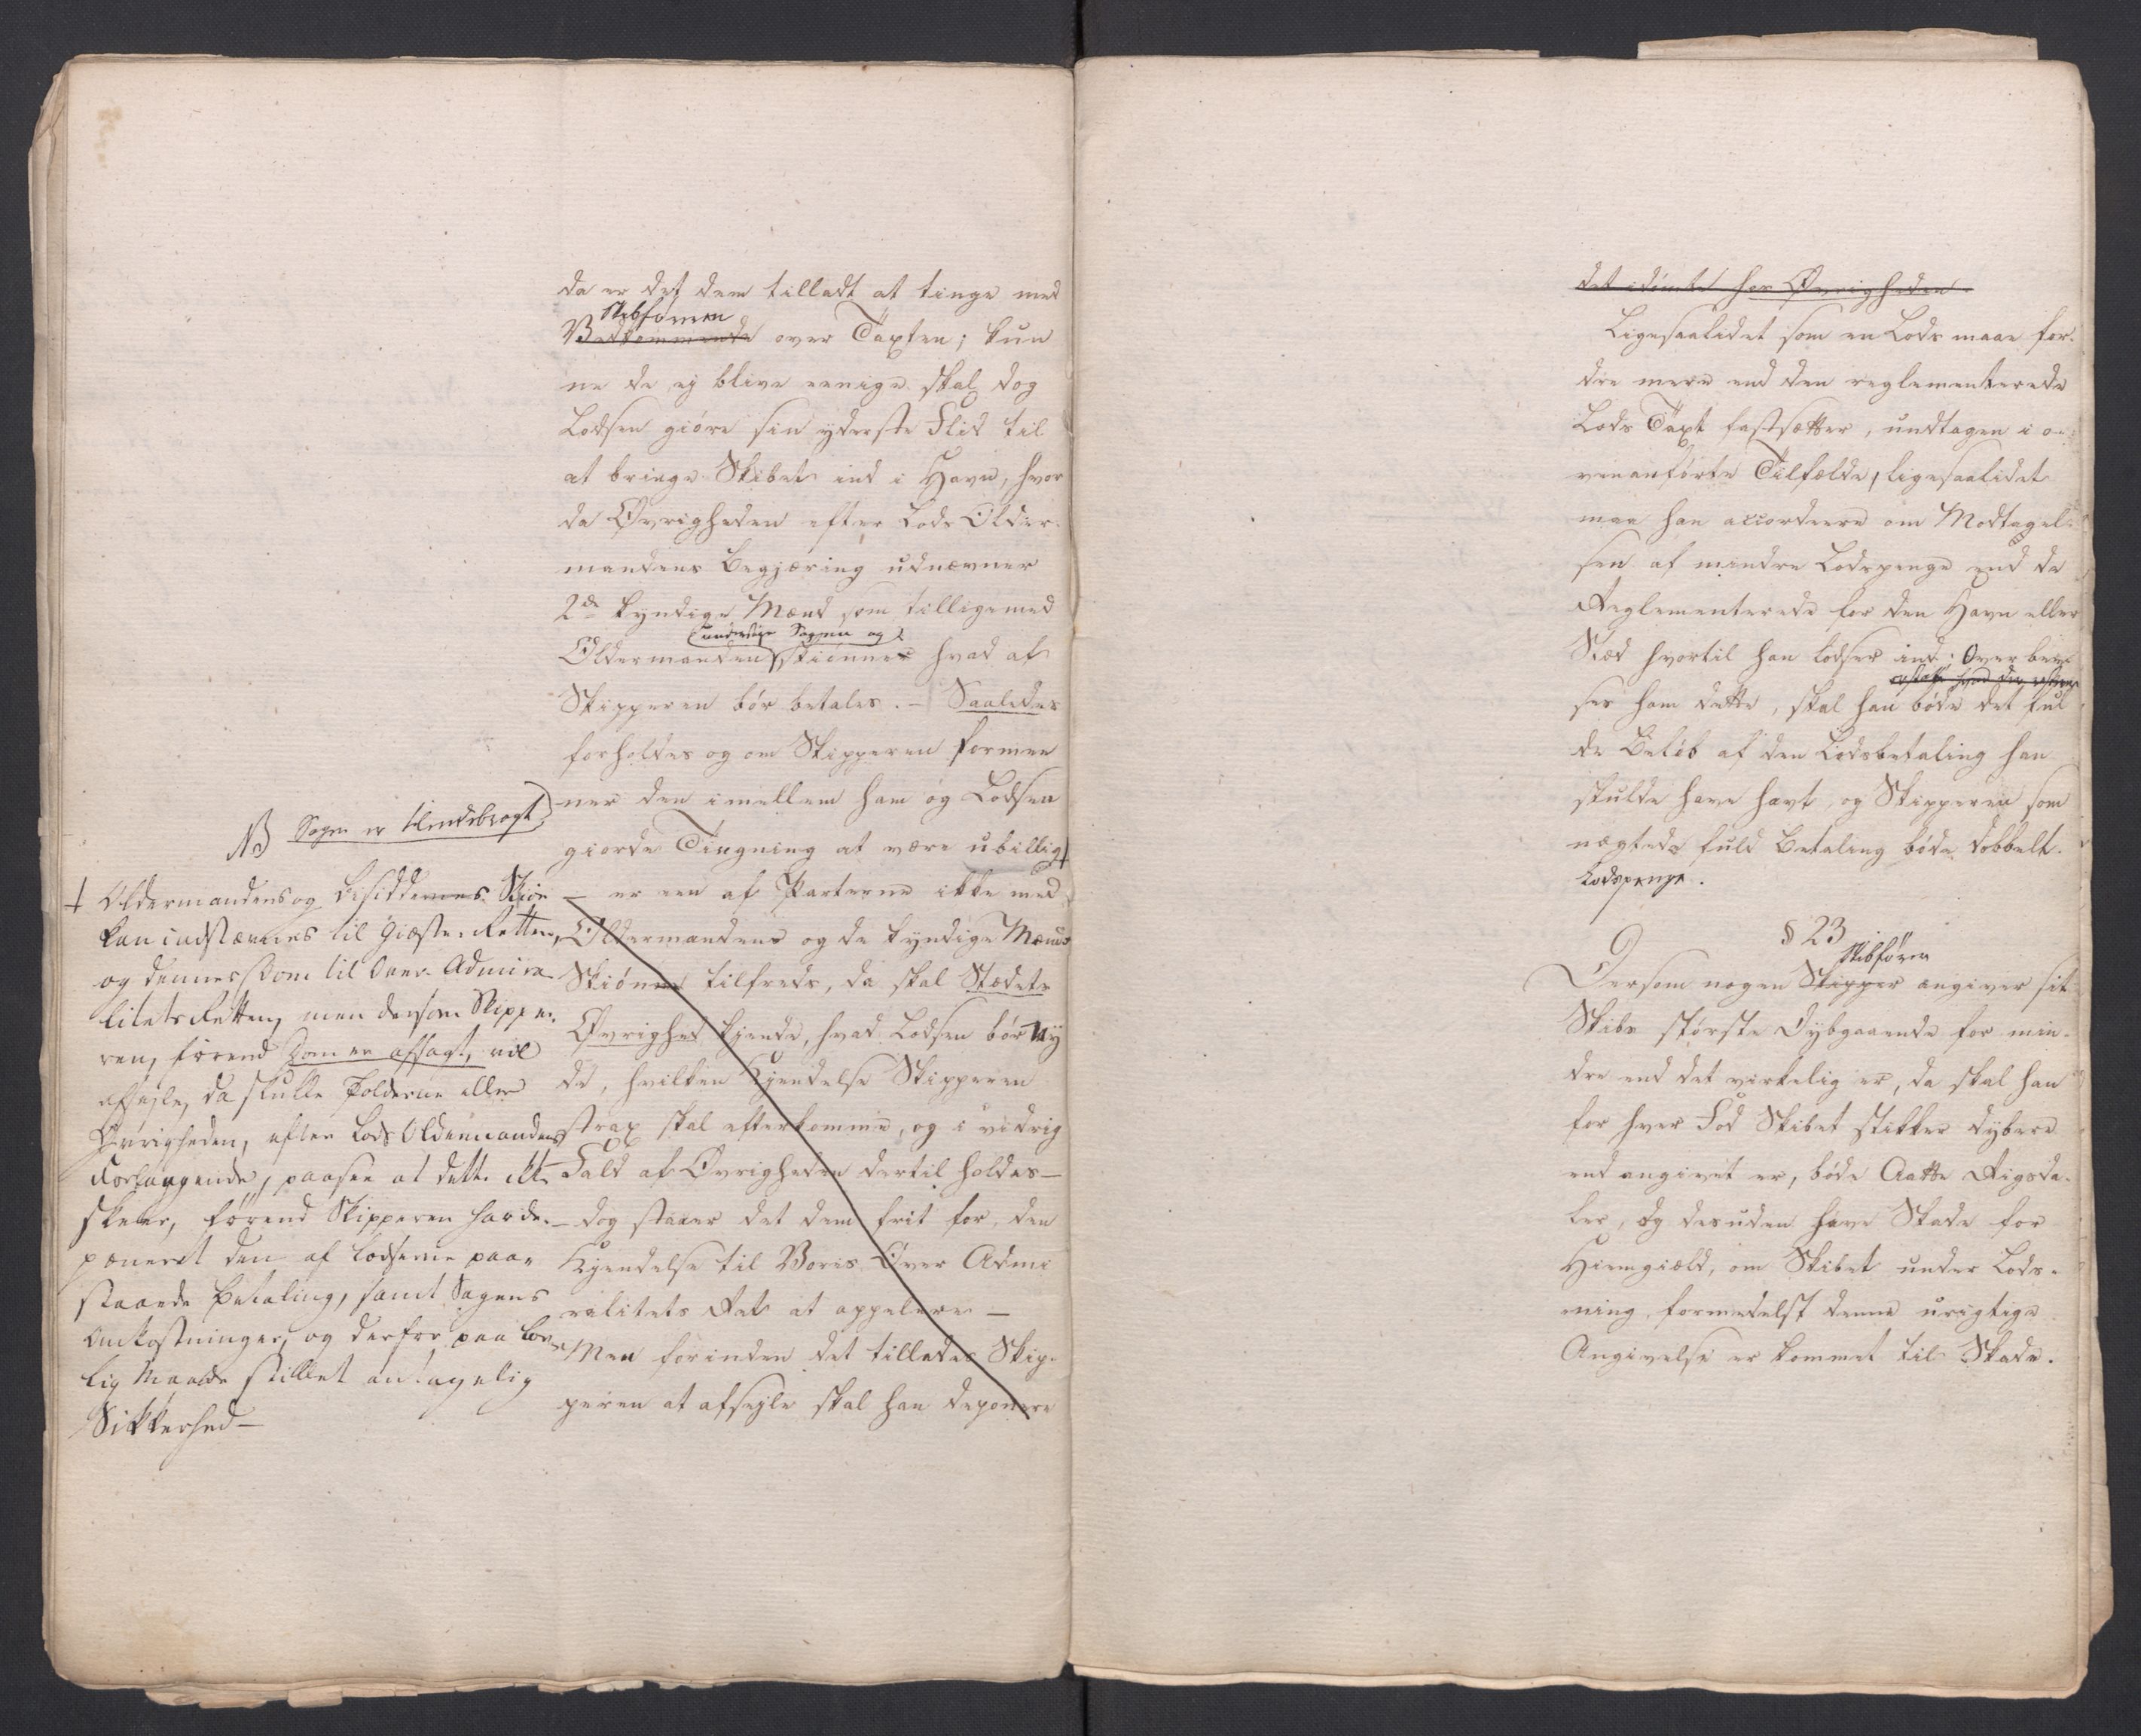 da er det dem tilladt at tinge med
Skibføreren
Vedkommende over Taxten; kun
ne de ej blive eenige skal dog
Lodsen giöre sin yderste Flid til
at bringe Skibet ind i Havn, hvor
da Øvrigheden efter Lods Older-
mandens Begjæring udnævner
2de kyndige Mænd som tilligemed
undersöge Sagen og
Oldermanden skiönner hvad af
Skipperen bör betales. - Saaledes
forholdes og om Skipperen formee
ner den imellem ham og Lodsen
giorde Tingning at være ubillig
— er een af Parterne ikke med
Oldermandens og de kyndige Mænds
Skiönne tilfreds, da skal Stædets
Øvrighed kjende, hvad Lodsen bör ny
de, hvilken Kjendelse Skipperen
strax skal efterkomme, og i vidrig
Fald af Øvrigheden dertil holdes —
— dog staaer det dem frit for, den
Kjendelse til Vores Over Admi
ralitets Ret at appelere —
Men forinden det tillades Skip-
peren at afsejle skal han deponere
NB Sagen er tilendebragt
† Oldermandens og Bisiddernes Skiön
kan indstævnes til Giæste-Retten,
og dennes Dom til Over-Admira
litets Retten, men dersom Skippe-
ren, förend Dom er afsagt, vil
afsejle, da skulle Tolderne eller
Øvrigheden, efter Lods Oldermandens
Forlangende, paasee at dette ikke
skeer, förend Skipperen har de-
poneret den af Lodserne paa-
staaede Betaling, samt Sagens
Omkostninger, og derfor paa lov-
lig Maade stillet antagelig
Sikkerhed —
det idömte hos Øvrigheden.
Ligesaalidet som en Lods maae for-
dre mere end den reglementerede
Lods Taxt fastsætter, undtagen i o-
venanförte Tilfælde, ligesaalidet
maa han accordere om Modtagel-
sen af mindre Lodspenge end de
Reglementerede for den Havn eller
Stæd hvortil han lodser ind; Overbevi
ses ham dette, skal han böde det ful
de Belöb af den Lodsbetaling han
skulde have havt, og Skipperen som
nægtede fuld Betaling böde dobbelt
Lodspenge.
§ 23
Skibförer
Dersom nogen Skipper angiver sit
Skibs störste Dybgaaende for min-
dre end det virkelig er, da skal han
for hver Fod Skibet stikker dybere
end angivet er, böde Aatte Rigsda-
ler, og desuden have Skade for
Hiemgiæld, om Skibet under Lods-
ning formedelst denne urigtige
Angivelse er kommet til Skade.